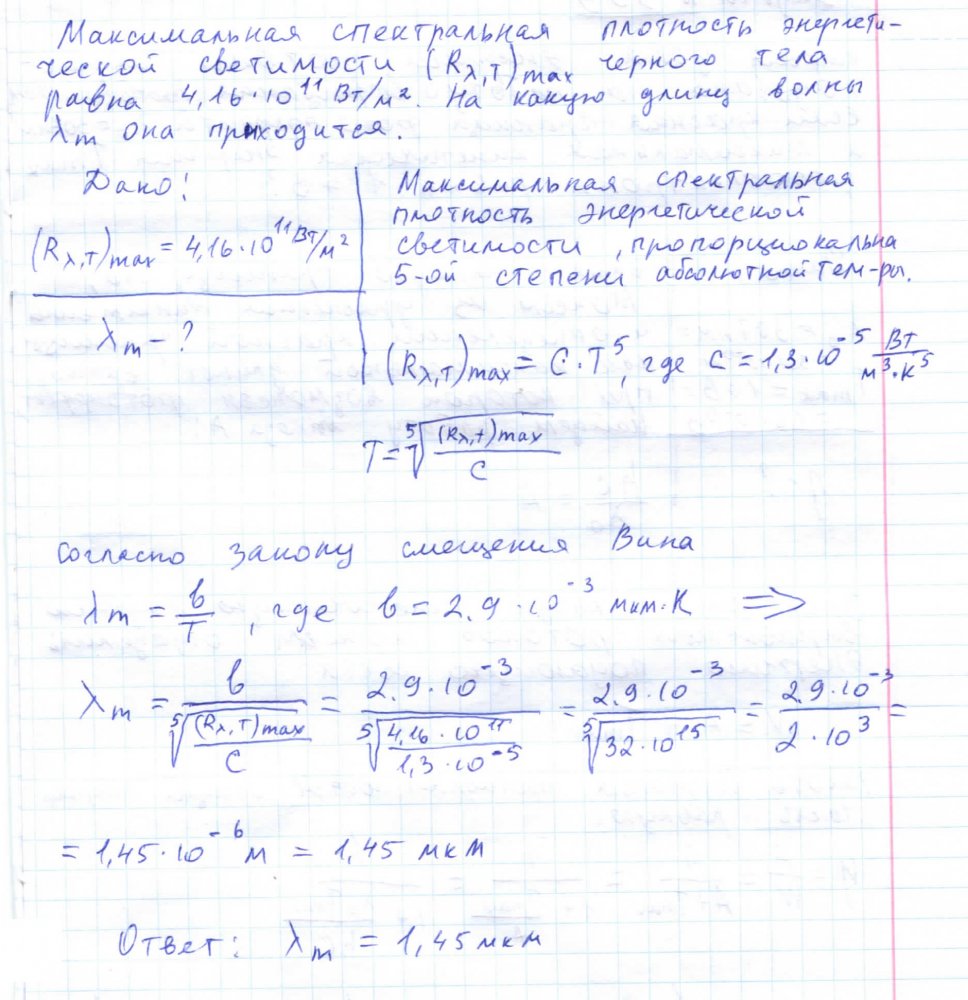 Максимальная спектральная плотность энергети-
ческой светимости (Rλ,т)max черного тела
равна 4,16·10¹¹ Вт/м². На какую длину волны
λm она приходится.
Дано!
(Rλ,т)max = 4,16·10¹¹ Вт/м²
λm - ?
Максимальная спектральная
плотность энергетической
светимости, пропорциональна
5-ой степени абсолютной тем-ры.
(Rλ,т)max = C·T⁵, где C = 1,3·10⁻⁵ Вт/м³·К⁵
T = ⁵√((Rλ,t)max/C)
Согласно закону смещения Вина
λm = b/T, где b = 2.9·10⁻³ мкм·К ⇒
λm = b/⁵√((Rλ,т)max/C) = 2.9·10⁻³/⁵√(4,16·10¹¹/1,3·10⁻⁵) = 2.9·10⁻³/⁵√(32·10¹⁵) = 2.9·10⁻³/2·10³ =
= 1,45·10⁻⁶ м = 1,45 мкм
Ответ: λm = 1,45 мкм